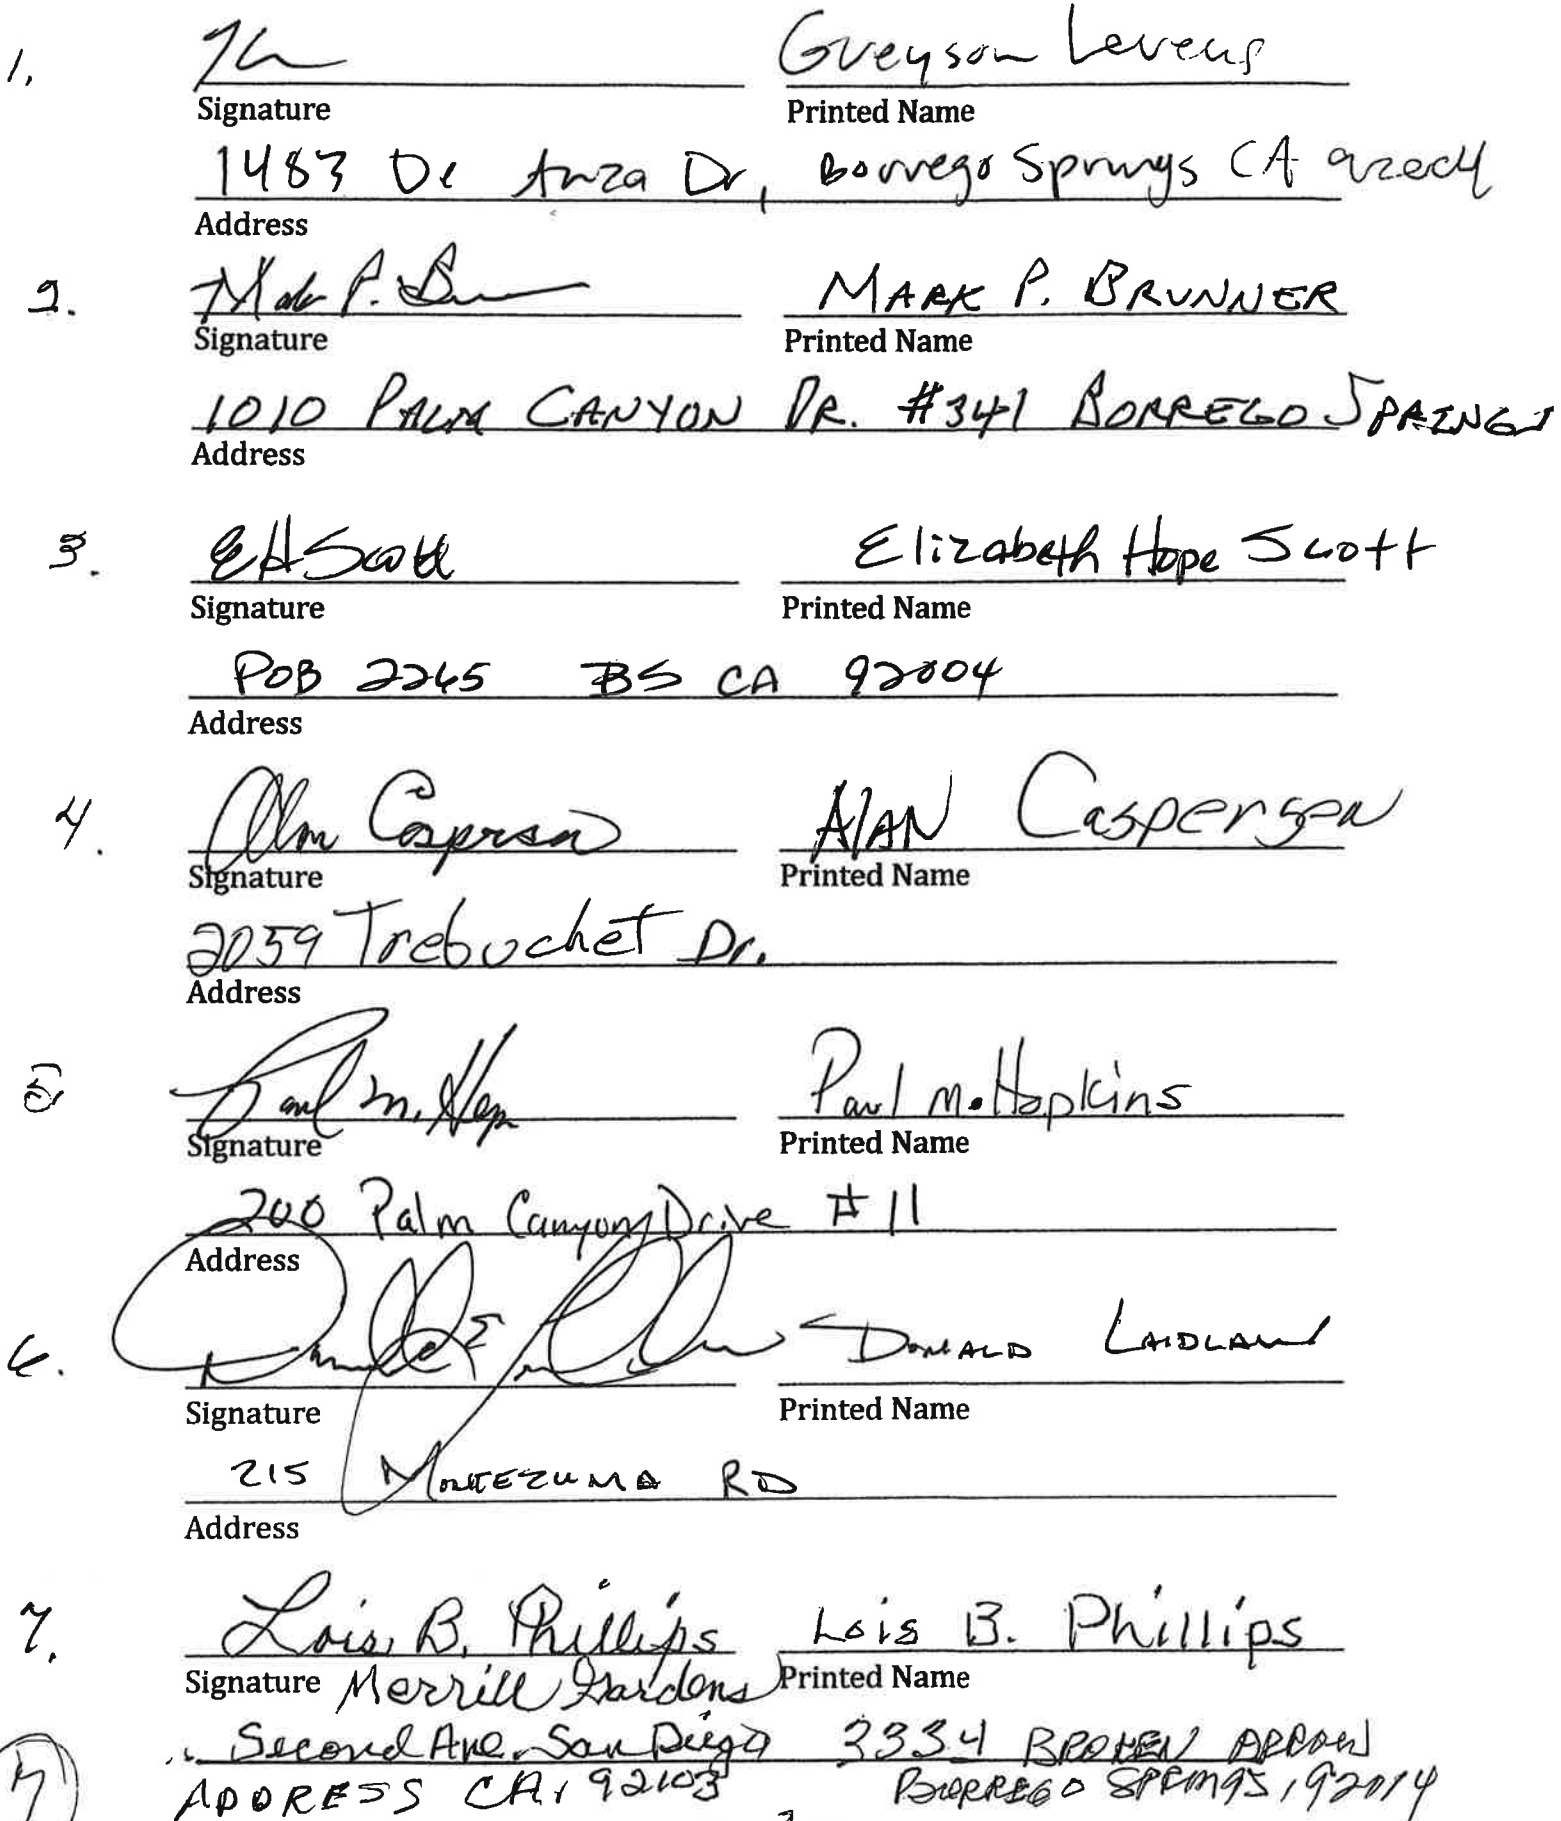 1. Greyson Levens
Signature Printed Name
1483 De Anza Dr, Borrego Springs CA 92004
Address
2. Mark P. B MARK P. BRUNNER
Signature Printed Name
1010 PALM CANYON DR. #341 BORREGO SPRINGS
Address
3. EH Scott Elizabeth Hope Scott
Signature Printed Name
POB 2265 BS CA 92004
Address
4. Alan Caspersen ALAN Caspersen
Signature Printed Name
2059 Trebuchet Dr.
Address
5 Paul M. Hop Paul M. Hopkins
Signature Printed Name
200 Palm Canyon Drive #11
Address
6. DONALD LAIDLAW
Signature Printed Name
215 MONTEZUMA RD
Address
7. Lois B. Phillips Lois B. Phillips
Signature Merrill Gardens Printed Name
Second Ave. San Diego 3334 BROKEN ARROW
7 ADDRESS CA, 92103 BORREGO SPRINGS, 92014